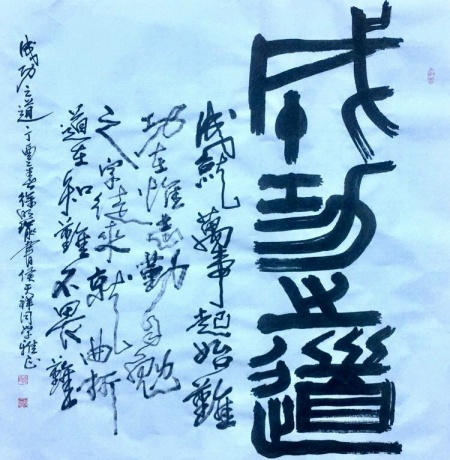 成功之道
成就萬事起始難
功在惟志勤自勉
之字從來就曲折
道在知難不畏難
成功之道 丁酉春 書 同学雅正